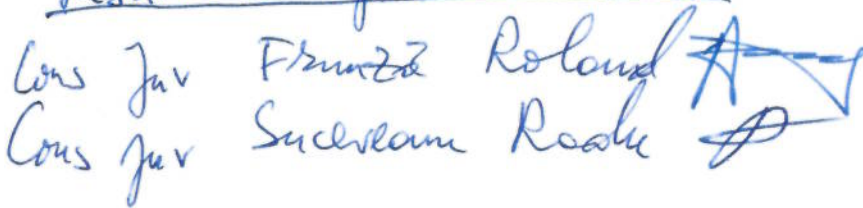 Cons Jur Frunză Roland
Cons Jur Suceveanu Radu